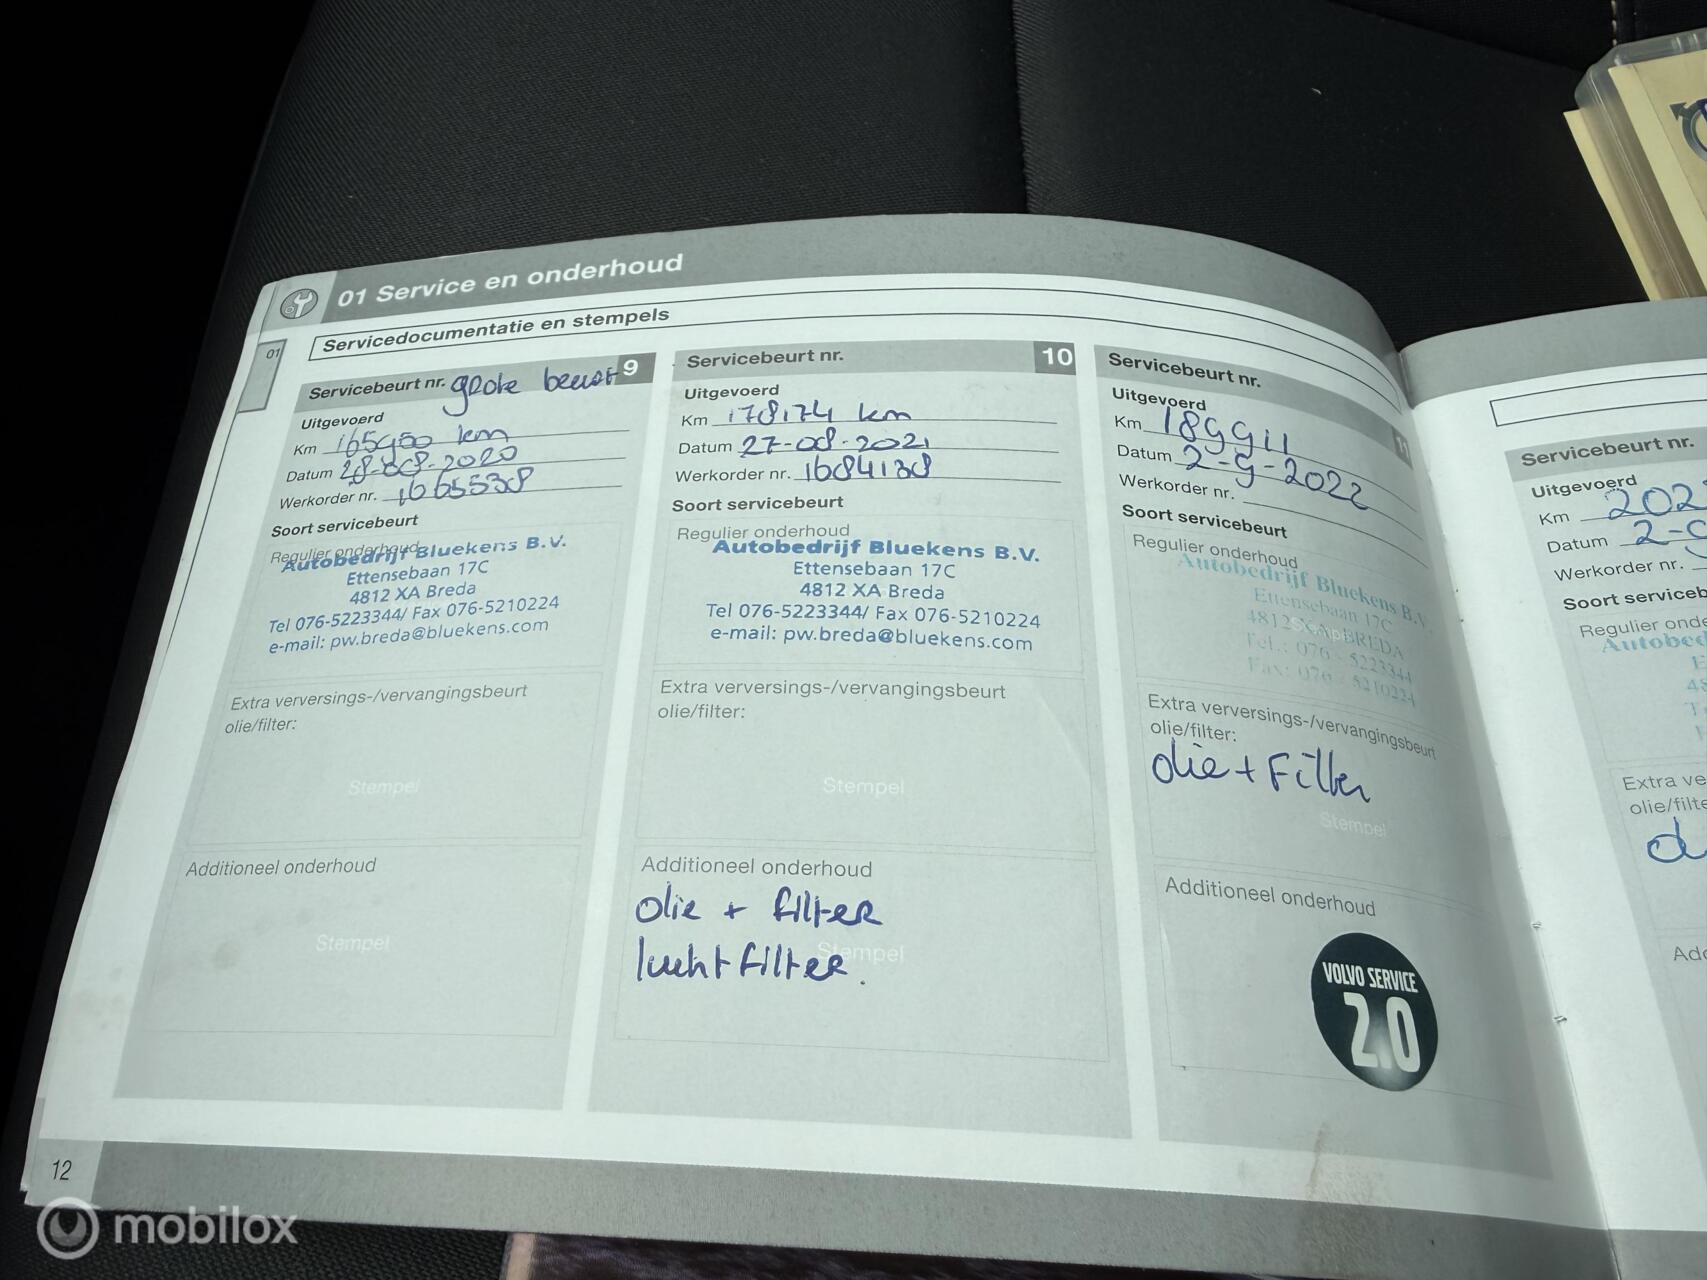 01 Service en onderhoud
01
Servicedocumentatie en stempels
Servicebeurt nr. grote beurt 9
Uitgevoerd
Km 165950 km
Datum 28-08-2020
Werkorder nr. 1665538
Soort servicebeurt
Regulier onderhoud
Autobedrijf Bluekens B.V.
Ettensebaan 17C
4812 XA Breda
Tel 076-5223344/ Fax 076-5210224
e-mail: pw.breda@bluekens.com
Extra verversings-/vervangingsbeurt
olie/filter:
Stempel
Additioneel onderhoud
Stempel
Servicebeurt nr. 10
Uitgevoerd
Km 178174 km
Datum 27-08-2021
Werkorder nr. 1684138
Soort servicebeurt
Regulier onderhoud
Autobedrijf Bluekens B.V.
Ettensebaan 17C
4812 XA Breda
Tel 076-5223344/ Fax 076-5210224
e-mail: pw.breda@bluekens.com
Extra verversings-/vervangingsbeurt
olie/filter:
Stempel
Additioneel onderhoud
olie + filter
luchtfilter.
Stempel
Servicebeurt nr. 11
Uitgevoerd
Km 189911
Datum 2-9-2022
Werkorder nr.
Soort servicebeurt
Regulier onderhoud
Autobedrijf Bluekens B.V.
Ettensebaan 17C
4812 XA BREDA
Tel.: 076 - 5223344
Fax: 076 - 5210224
Extra verversings-/vervangingsbeurt
olie/filter:
olie + Filter
Stempel
Additioneel onderhoud
VOLVO SERVICE
2.0
12
Servicebeurt nr.
Uitgevoerd
Km 202
Datum 2-
Werkorder nr.
Soort serviceb
Regulier onde
Autobed
Extra ve
olie/filte
mobilox